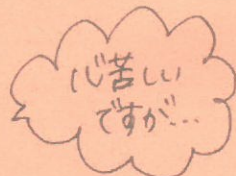 心苦しい
ですが…